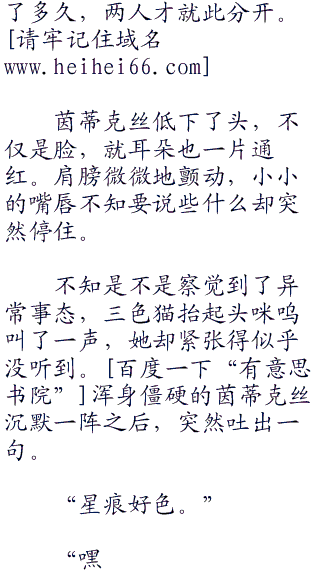 了多久，两人才就此分开。
[请牢记住域名
www.heihei66.com]
茵蒂克丝低下了头，不
仅是脸，就耳朵也一片通
红。肩膀微微地颤动，小小
的嘴唇不知要说些什么却突
然停住。
不知是不是察觉到了异
常事态，三色猫抬起头咪呜
叫了一声，她却紧张得似乎
没听到。[百度一下“有意思
书院”]浑身僵硬的茵蒂克丝
沉默一阵之后，突然吐出一
句。
“星痕好色。”
“嘿